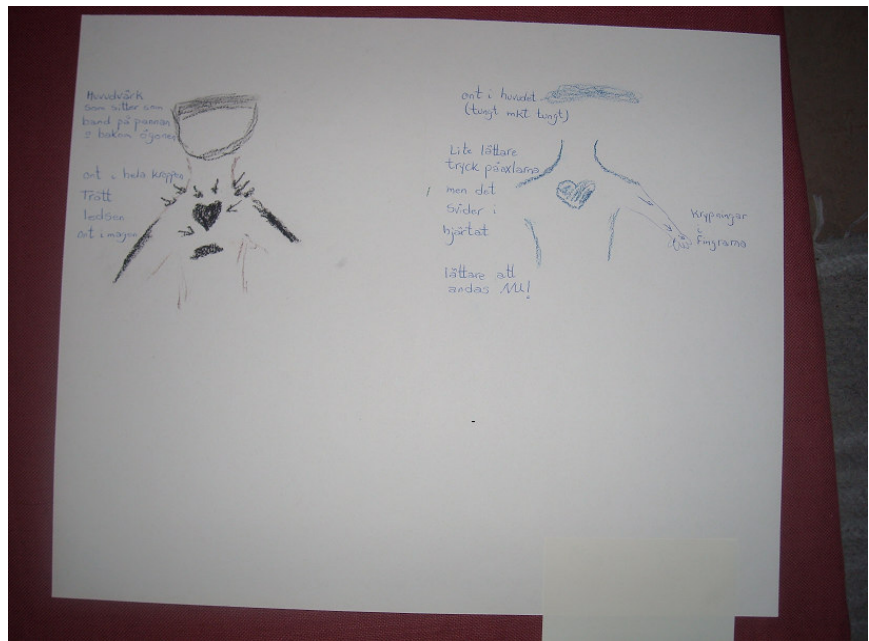 Huvudvärk
som sitter som
band på pannan
& bakom ögonen
ont i hela kroppen
Trött
ledsen
ont i magen
ont i huvudet
(tungt mkt tungt)
Lite lättare
tryck på axlarna
men det
svider i
hjärtat
lättare att
andas NU!
Krypningar
i
Fingrarna